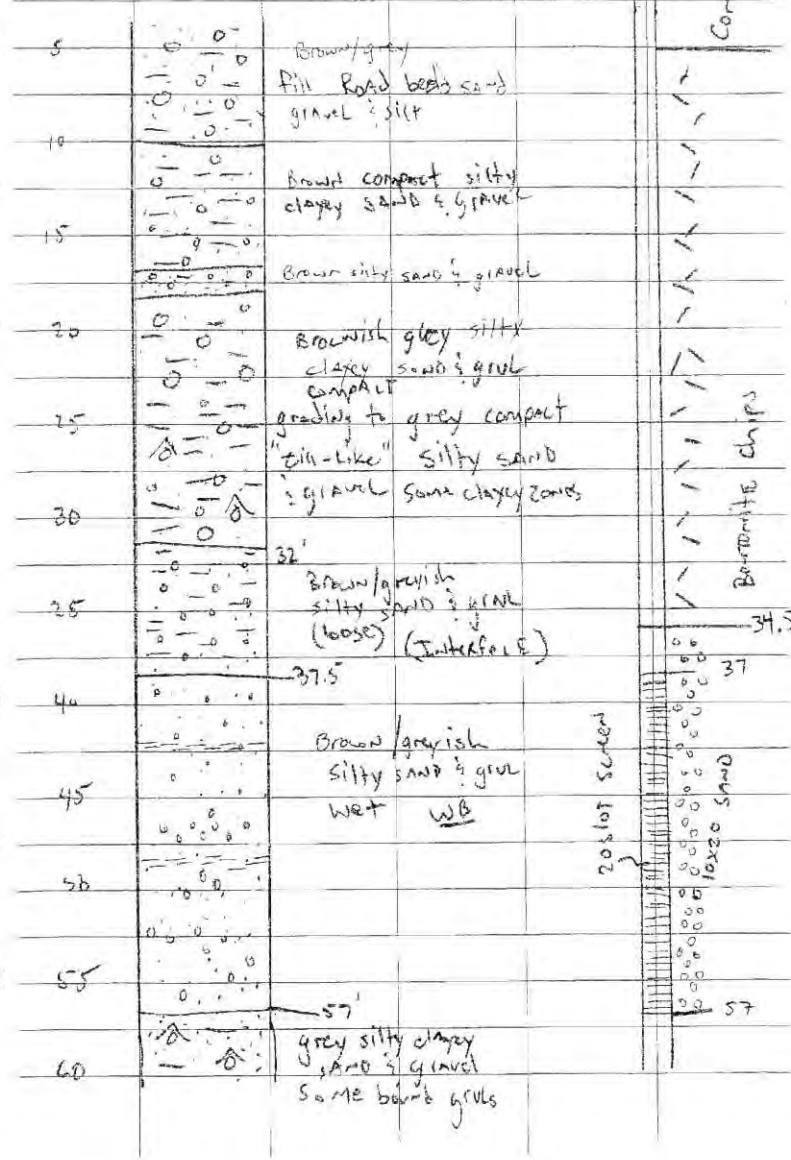 5
Brown/grey
fill Road bed sand
gravel & silt
10
Brown compact silty
clayey SAND & GRAVEL
15
Brown silty SAND & gravel
20
Brownish grey silty
clayey SAND & grvl
compact
25
grading to grey compact
"till-like" silty sand
& gravel some clayey zones
30
32'
Brown/greyish
silty SAND & grvl
(loose) (Interface)
35
37.5
40
Brown/greyish
silty SAND & grvl
wet WB
45
50
55
57'
grey silty clayey
SAND & gravel
Some bound grvls
60
Con
Bentonite chips
34.5
37
20 slot screen
10x20 SAND
57